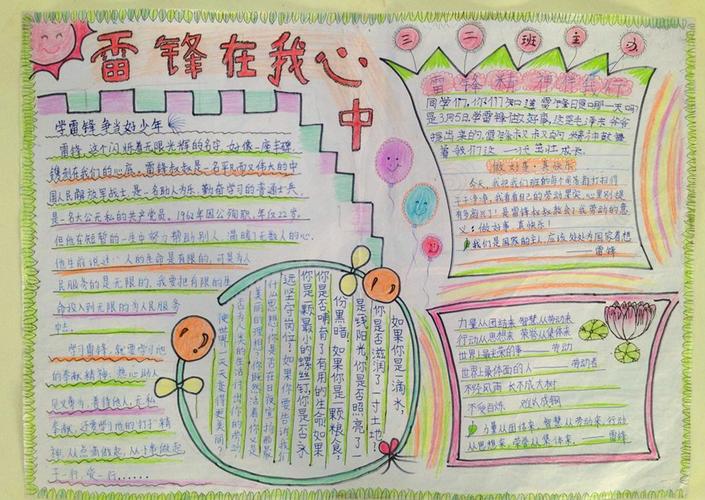 雷锋在我心中
学雷锋 争当好少年
雷锋,这个闪烁着无限光辉的名字,如像一座丰碑
镌刻在我们的心底。雷锋叔叔是一名平凡而又伟大的中
国人民解放军战士,是一名助人为乐、勤奋学习的普通士兵,
是一名大公无私的共产党员。1962年因公殉职,年仅22岁。
但他在短暂的一生中努力帮助别人,温暖了无数人的心。
他生前说过:人的生命是有限的,可是为人
民服务的是无限的,我要把有限的生
命投入到无限的为人民服务
中去。
学习雷锋,就要学习他
的奉献精神,热心助人
见义勇为,善待他人,无私
奉献,还要学习他的钉子精
神,从点滴做起,从小事做起
干一行,爱一行……
如果你是一滴水,
你是否滋润了一寸土地?
是线阳光,你是否照亮了一
份黑暗,如果你是一颗粮食,
你是否哺育了有用的生命,如果
你是一颗最小的螺丝钉,你是否永
远坚守岗位?如果你要告诉我们
什么思想,你是否在日夜宣扬那最
美丽的理想?你既然活着,你又是
否为人类的生活付出你的劳动
使世界一天天变得更美丽?
三二班主办
雷锋精神伴我行
同学们,你们知道雷锋日是哪一天吗?
是3月5日,学雷锋做好事,
做好事·真快乐
今天,我把我们班的每个角落都打扫得
干干净净,我看着自己的劳动果实,心里别提
有多高兴了!是雷锋叔叔教会了我劳动的意
义:做好事,真快乐!
我们是国家的主人,应该处处为国家着想
——雷锋
力量从团结来,智慧从劳动来
行动从思想来,荣誉从集体来
世界上最美的事——劳动
世界上最体面的人——劳动者
不经风雨 长不成大树
不受百炼 难以成钢
力量从团结来,智慧从劳动来,行动
从思想来,荣誉从集体来。——雷锋